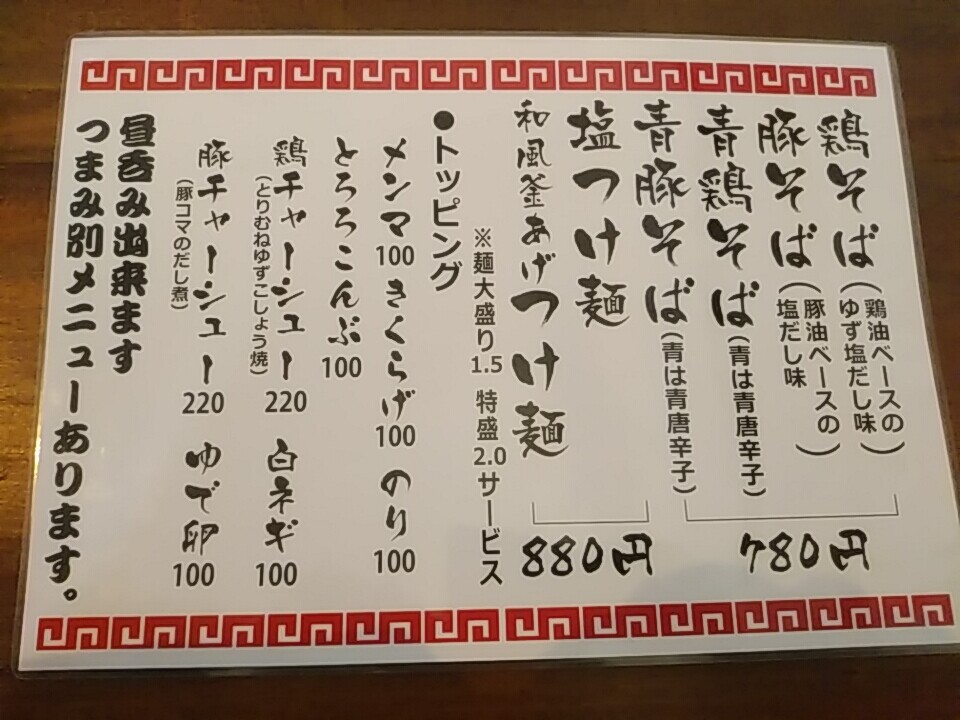 鶏そば(鶏油ベースの
ゆず塩だし味)
豚そば(豚油ベースの
塩だし味)
青鶏そば(青は青唐辛子)
青豚そば(青は青唐辛子)
780円
塩つけ麺
和風釜あげつけ麺
880円
※麺大盛り1.5 特盛2.0サービス
●トッピング
メンマ100 きくらげ100 のり100
とろろこんぶ100
鶏チャーシュー220 白ネギ100
(とりむねゆずこしょう焼)
豚チャーシュー220 ゆで卵100
(豚コマのだし煮)
昼呑み出来ます
つまみ別メニューあります。